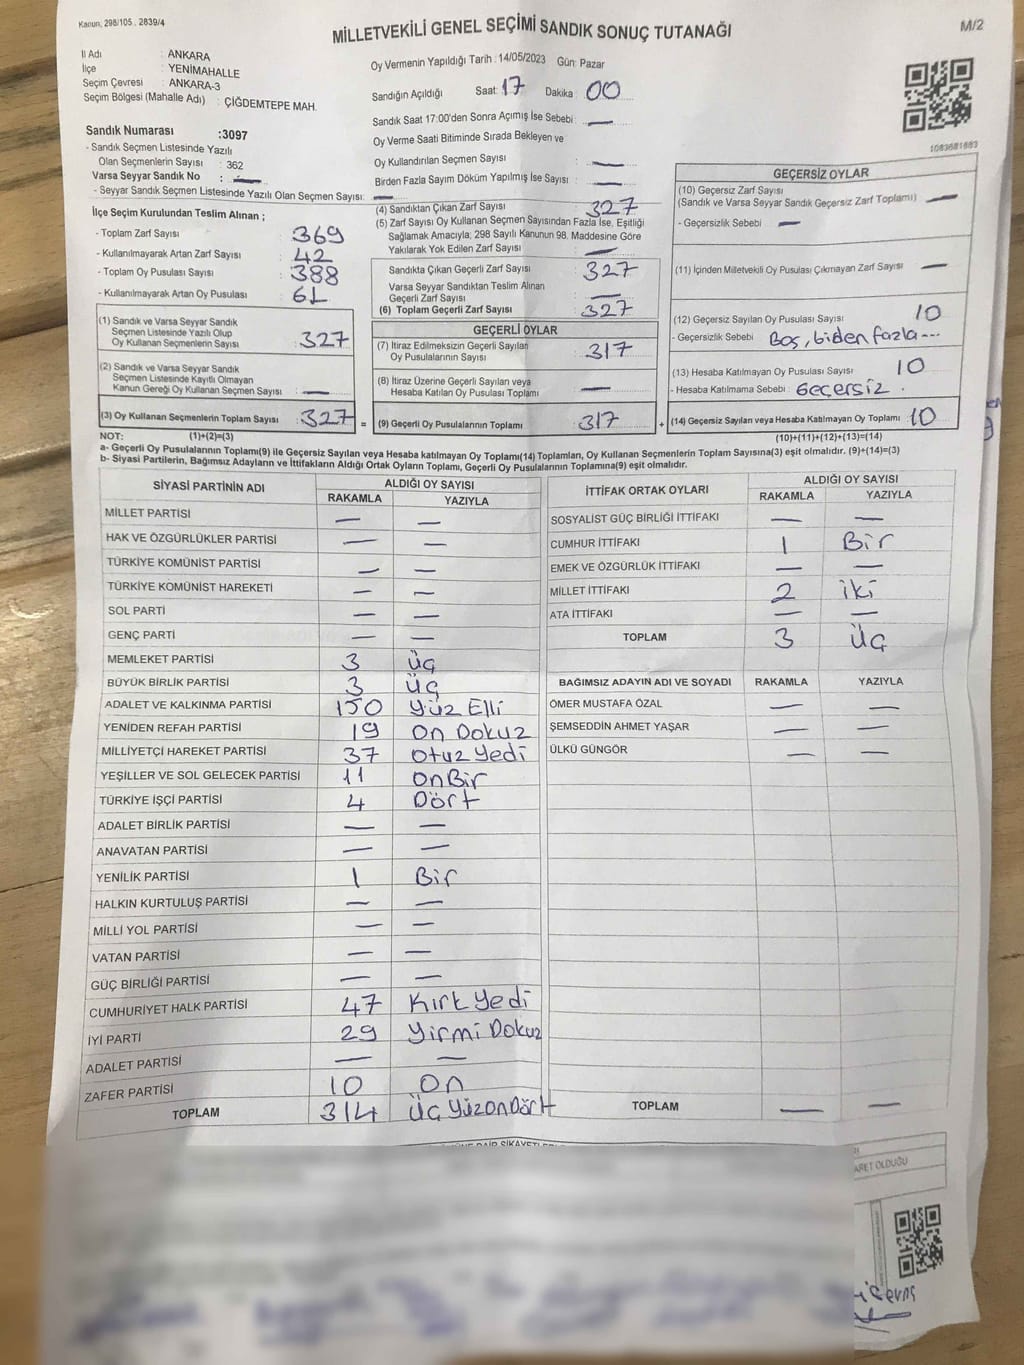 Kanun; 298/105 , 2839/4
MİLLETVEKİLİ GENEL SEÇİMİ SANDIK SONUÇ TUTANAĞI
M/2
İl Adı : ANKARA
İlçe : YENİMAHALLE
Seçim Çevresi : ANKARA-3
Seçim Bölgesi (Mahalle Adı) : ÇİĞDEMTEPE MAH.
Sandık Numarası :3097
- Sandık Seçmen Listesinde Yazılı
Olan Seçmenlerin Sayısı : 362
Varsa Seyyar Sandık No : —
- Seyyar Sandık Seçmen Listesinde Yazılı Olan Seçmen Sayısı: —
İlçe Seçim Kurulundan Teslim Alınan ;
- Toplam Zarf Sayısı : 369
- Kullanılmayarak Artan Zarf Sayısı : 42
- Toplam Oy Pusulası Sayısı : 388
- Kullanılmayarak Artan Oy Pusulası : 61
(1) Sandık ve Varsa Seyyar Sandık
Seçmen Listesinde Yazılı Olup
Oy Kullanan Seçmenlerin Sayısı : 327
(2) Sandık ve Varsa Seyyar Sandık
Seçmen Listesinde Kayıtlı Olmayan
Kanun Gereği Oy Kullanan Seçmen Sayısı : —
(3) Oy Kullanan Seçmenlerin Toplam Sayısı : 327 =
Oy Vermenin Yapıldığı Tarih : 14/05/2023 Gün: Pazar
Sandığın Açıldığı Saat: 17 Dakika : 00
Sandık Saat 17:00'den Sonra Açımış İse Sebebi : —
Oy Verme Saati Bitiminde Sırada Bekleyen ve
Oy Kullandırılan Seçmen Sayısı : —
Birden Fazla Sayım Döküm Yapılmış İse Sayısı : —
(4) Sandıktan Çıkan Zarf Sayısı : 327
(5) Zarf Sayısı Oy Kullanan Seçmen Sayısından Fazla İse, Eşitliği
Sağlamak Amacıyla; 298 Sayılı Kanunun 98. Maddesine Göre
Yakılarak Yok Edilen Zarf Sayısı : —
Sandıkta Çıkan Geçerli Zarf Sayısı : 327
Varsa Seyyar Sandıktan Teslim Alınan
Geçerli Zarf Sayısı : —
(6) Toplam Geçerli Zarf Sayısı : 327
GEÇERLİ OYLAR
(7) İtiraz Edilmeksizin Geçerli Sayılan
Oy Pusulalarının Sayısı : 317
(8) İtiraz Üzerine Geçerli Sayılan veya
Hesaba Katılan Oy Pusulası Toplamı : —
(9) Geçerli Oy Pusulalarının Toplamı : 317 +
1083681683
GEÇERSİZ OYLAR
(10) Geçersiz Zarf Sayısı
(Sandık ve Varsa Seyyar Sandık Geçersiz Zarf Toplamı) : —
- Geçersizlik Sebebi : —
(11) İçinden Milletvekili Oy Pusulası Çıkmayan Zarf Sayısı : —
(12) Geçersiz Sayılan Oy Pusulası Sayısı : 10
- Geçersizlik Sebebi : Boş, biden fazla---
(13) Hesaba Katılmayan Oy Pusulası Sayısı : 10
- Hesaba Katılmama Sebebi : Geçersiz .
(14) Geçersiz Sayılan veya Hesaba Katılmayan Oy Toplamı : 10
NOT: (1)+(2)=(3)
(10)+(11)+(12)+(13)=(14)
a- Geçerli Oy Pusulalarının Toplam(9) ile Geçersiz Sayılan veya Hesaba katılmayan Oy Toplamı(14) Toplamları, Oy Kullanan Seçmenlerin Toplam Sayısına(3) eşit olmalıdır. (9)+(14)=(3)
b- Siyasi Partilerin, Bağımsız Adayların ve İttifakların Aldığı Ortak Oyların Toplamı, Geçerli Oy Pusulalarının Toplamına(9) eşit olmalıdır.
SİYASİ PARTİNİN ADI ALDIĞI OY SAYISI
RAKAMLA YAZIYLA
MİLLET PARTİSİ — —
HAK VE ÖZGÜRLÜKLER PARTİSİ — —
TÜRKİYE KOMÜNİST PARTİSİ — —
TÜRKİYE KOMÜNİST HAREKETİ — —
SOL PARTİ — —
GENÇ PARTİ — —
MEMLEKET PARTİSİ 3 Üç
BÜYÜK BİRLİK PARTİSİ 3 Üç
ADALET VE KALKINMA PARTİSİ 150 Yüz Elli
YENİDEN REFAH PARTİSİ 19 On Dokuz
MİLLİYETÇİ HAREKET PARTİSİ 37 Otuz Yedi
YEŞİLLER VE SOL GELECEK PARTİSİ 11 OnBir
TÜRKİYE İŞÇİ PARTİSİ 4 Dört
ADALET BİRLİK PARTİSİ — —
ANAVATAN PARTİSİ — —
YENİLİK PARTİSİ 1 Bir
HALKIN KURTULUŞ PARTİSİ — —
MİLLİ YOL PARTİSİ — —
VATAN PARTİSİ — —
GÜÇ BİRLİĞİ PARTİSİ — —
CUMHURİYET HALK PARTİSİ 47 Kırk Yedi
İYİ PARTİ 29 Yirmi Dokuz
ADALET PARTİSİ — —
ZAFER PARTİSİ 10 On
TOPLAM 314 Üç YüzOnDört
İTTİFAK ORTAK OYLARI ALDIĞI OY SAYISI
RAKAMLA YAZIYLA
SOSYALİST GÜÇ BİRLİĞİ İTTİFAKI — —
CUMHUR İTTİFAKI 1 Bir
EMEK VE ÖZGÜRLÜK İTTİFAKI — —
MİLLET İTTİFAKI 2 iki
ATA İTTİFAKI — —
TOPLAM 3 Üç
BAĞIMSIZ ADAYIN ADI VE SOYADI RAKAMLA YAZIYLA
ÖMER MUSTAFA ÖZAL — —
ŞEMSEDDİN AHMET YAŞAR — —
ÜLKÜ GÜNGÖR — —
TOPLAM — —
ARET OLDUĞU